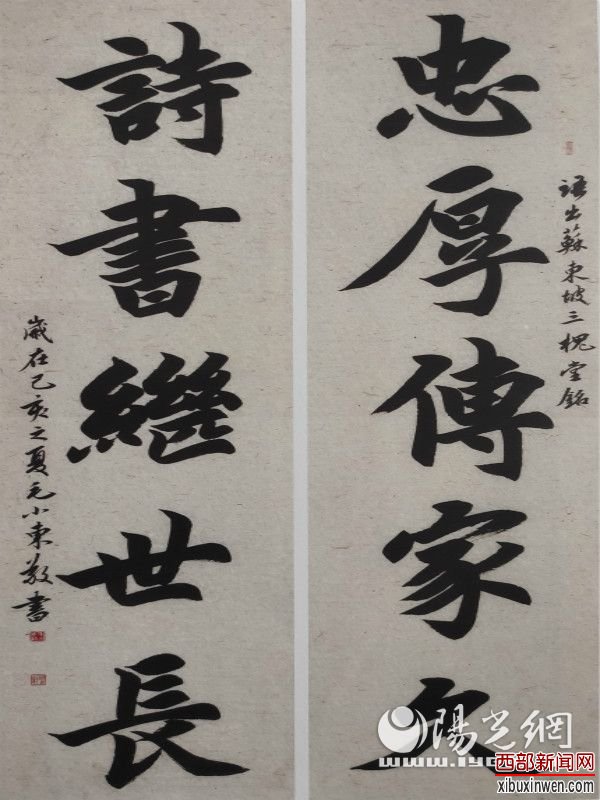 語出蘇東坡三槐堂銘
忠厚傳家久
詩書繼世長
歲在己亥之夏毛小東敬書
陽光網
西部新闻网
xibuxinwen.com